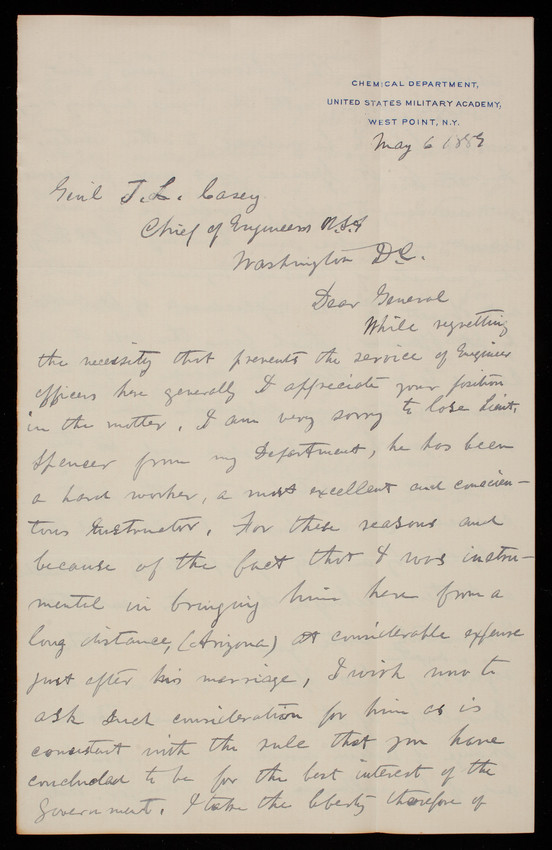 CHEMICAL DEPARTMENT,
UNITED STATES MILITARY ACADEMY,
WEST POINT, N.Y.
May 6 1889
Genl T. L. Casey
Chief of Engineers U.S.A
Washington D.C.
Dear General
While regretting
the necessity that prevents the service of Engineer
officers here generally I appreciate your position
in the matter. I am very sorry to lose Lieut.
Spencer from my Department, he has been
a hard worker, a most excellent and conscien-
tous Instructor. For these reasons and
because of the fact that I was instru-
mental in bringing him here from a
long distance, (Arizona) at considerable expense
just after his marriage, I wish now to
ask such consideration for him as is
consistant with the rule that you have
concluded to be for the best interest of the
Government. I take the liberty therefore of